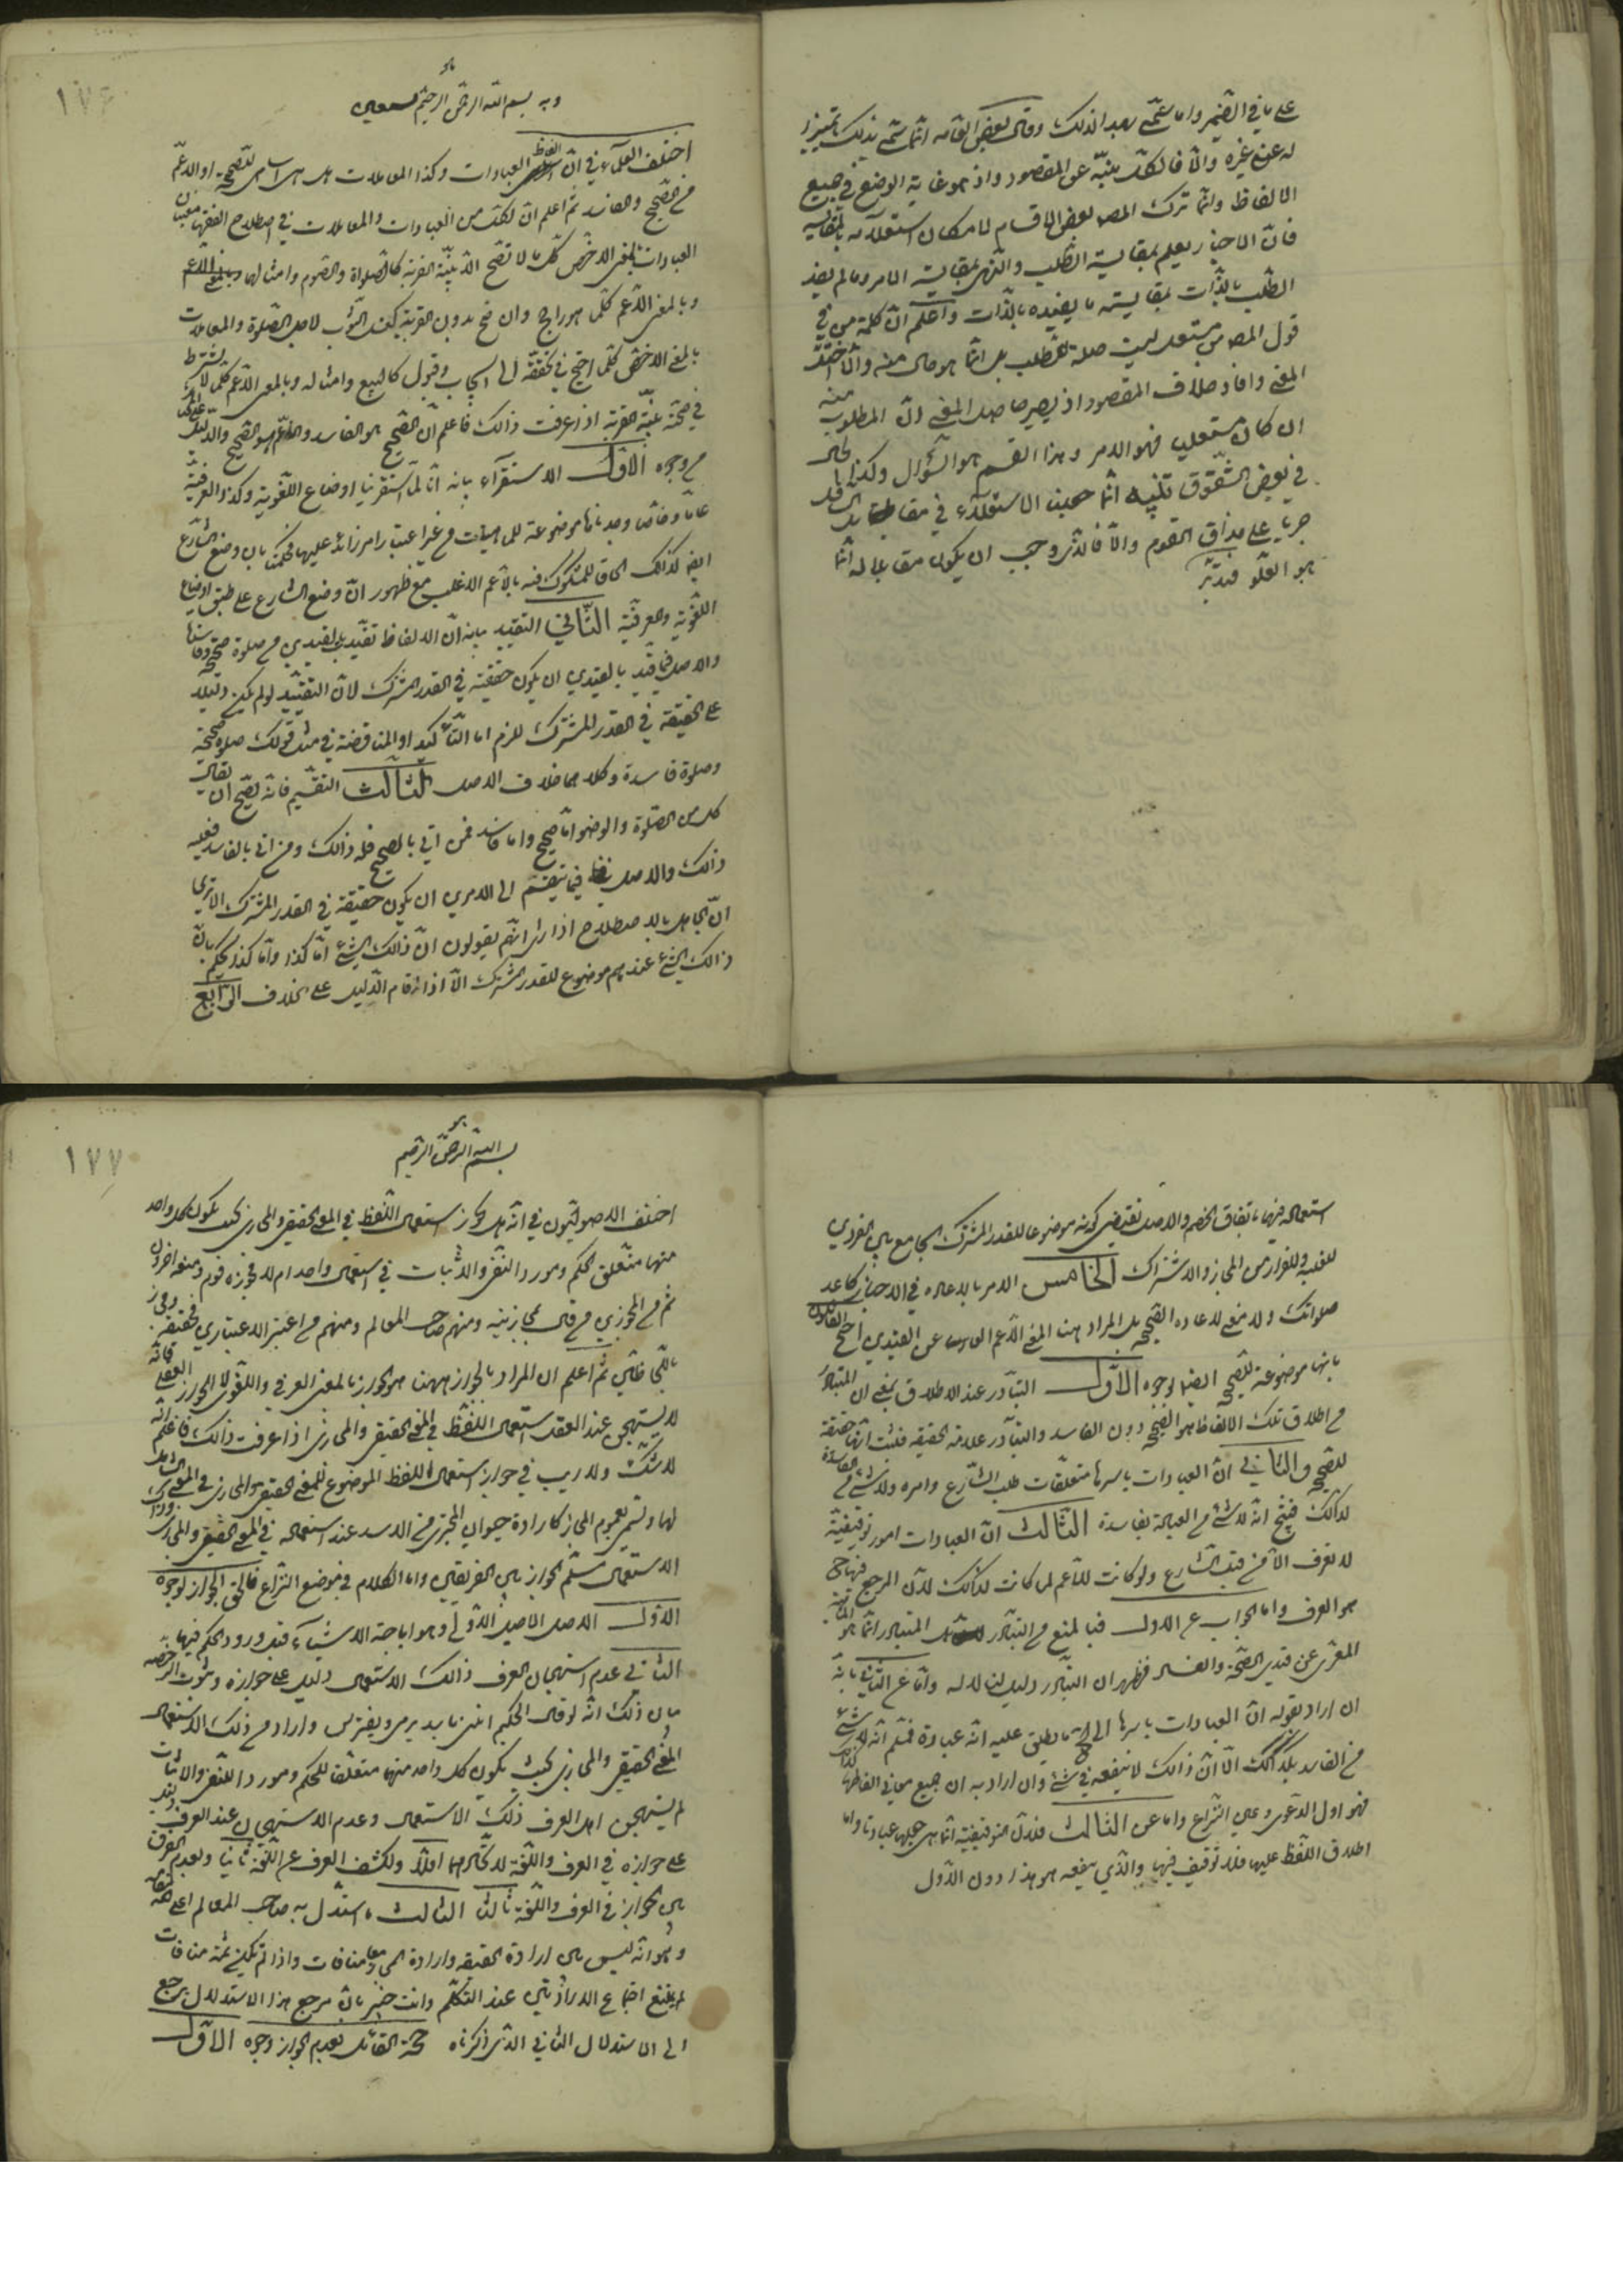 على ما في الضمير واما سمّي بعد الذلك وقال بعض القامه انّما سمّي بذلك تمييزا
له عن غيره والّا فالكلّ ينبّه عن المقصود واذ هو غاية الوضع في جميع
الالفاظ وانّما ترك المصـ بعض الاقسام لامكان استعلامه بالمقايسه
فانّ الاخبار يعلم بمقايسة الطّلب والنّهى بمقايسة الامر وما لم يفد
الطّلب بالذّات بمقايسته ما يفيده بالذّات واعلم انّ كلمة من في
قول المصـ من مستعل ليست صلة للطّلب بل انّما هو حال منه والّا اختلّ
المعنى وافاد خلاف المقصود اذ يصير حاصل المعنى انّ المطلوب منه
ان كان مستعليا فهو الامر وهذا القسم هو السّؤال وكذا الحال
في بعض الشّقوق تنبيه انّما الاستعلاء في مقابلة
جريا على مذاق القوم والّا فالّذي وجب ان يكون مقابلا له انّما
هو العلّو فتدبّر
١٧٦
هو
وبه بسم الله الرحمن الرحيم نستعين
اختلف العلماء في انّ الفاظ العبادات وكذا المعاملات هل هي اسامى للصّحيحة او الاعمّ
من الصّحيح والفاسد ثمّ اعلم انّ لكلّ من العبادات والمعاملات في اصطلاح الفقهاء معنيان
العبادات بالمعنى الاخصّ كلّ ما لا تصحّ الّا بنيّة القربة كالصّلواة والصّوم وامثالها
وبالمعنى الاعم كلّما هو راجح وان صحّ بدون القربة لاصل الصّلوة والمعاملات
بالمعنى الاخصّ كلّما احتيج في تحقّقه الى ايجاب وقبول كالبيع وامثاله وبالمعنى الاعمّ كلّما لا يشترط
في صحّته نيّة القربة اذا عرفت ذالك فاعلم انّ الصّحيح هو الفاسد والاعمّ هو الصّحيح والدّليل على ذلك
من وجوه الاوّل الاستقرآء بيانه انّا لمّا استقرينا اوضاع اللّغوية وكذا العرفيّة
عامّا وخاصّا وجدناها موضوعة للماهيات من غير اعتبار امر زائد عليها فحكمنا بان وضع الشّارع
ايضا كذالك الحاقا للمشكوك فيه بالاعم الاغلب مع ظهور انّ وضع الشارع على طبق اوضاع
اللّغوية والعرفيّة الثّاني التقييد بيانه انّ الالفاظ تقيّد بالقيدين من صلوة صحيحة وفاسدة
والاصل فيما قيّد بالقيدين ان يكون حقيقة في القدر المشترك لانّ التقييد لو لم يكن دليلا
على الحقيقة في القدر المشترك للزم اما التّأكيد او المناقضة في مثل قولك صلوة صحيحة
وصلوة فاسدة وكلاهما خلاف الاصل الثّالث التّقسيم فانّه يصحّ ان يقال
كل من الصّلوة والوضوء امّا صحيح واما فاسد فمن اتى بالصحيح فله ذالك ومن اتى بالفاسد فعليه
ذالك والاصل فيما ينقسم الى الامرين ان يكون حقيقة في القدر المشترك الا ترى
انّ الجاهل بالاصطلاح اذا راى انّهم يقولون انّ ذالك الشّئ امّا كذا وامّا كذا يحكم بانّ
ذالك الشّئ عندهم موضوع للقدر المشترك الّا اذا قام الدّليل على خلاف الرّابع
استعماله فيهما باتفاق الخصم والاصل يقتضى كونه موضوعا للقدر المشترك الجامع بين الفردين
للغلبة وللفرار من المجاز والاشتراك الخامس الامر بالاعاده في الاخبار كاعد
صلواتك ولا معنى لاعاده الصّحيحه بل المراد هنا المعنى الاعم العارى عن القيدين احتجّ القائلون
بانها موضوعة للصّحيحه ايضا بوجوه الاوّل التّبادر عند الاطلاق بمعنى ان المتبادر
من اطلاق تلك الالفاظ هو الصّحيحه دون الفاسد والتبادر علامة الحقيقه فثبت انّها حقيقة
للصّحيحه والثاني انّ العبادات باسرها متعلّقات طلب الشّارع وامره ولا شئ من الفاسدة
كذالك فينتج انّه لا شئ من العبادة بفاسدة الثّالث انّ العبادات امور توقيفيّة
لا تعرف الّا من قبل الشّارع ولو كانت للاعم لما كانت كذالك لانّ المرجع فيها ح
هو العرف واما الجواب عن الاول فبالمنع من التبادر بل المتبادر انّما هو
المعرّى عن قيدى الصّحّة والفساد فظهر ان التبادر دليل لنا لا له وامّا عن الثّاني بانّه
ان اراد بقوله انّ العبادات باسرها الى ح ما يطلق عليه انّه عبادة فمسلّم انّه لا شئ
من الفاسد بكذالك الّا انّ ذالك لا ينفعه في شئ وان اراد به ان جميع معاني الفاظها كذالك
فهو اول الدّعوى وعين النّزاع واما عن الثّالث فلانّ التوقيفيّة انّما هى جعلها عبادة واما
اطلاق اللّفظ عليها فلا توقيف فيها والّذي ينفعه هو هذا دون الاوّل
١٧٧
هو
بسم الله الرّحمن الرّحيم
اختلف الاصوليّون في انّه هل يجوز استعمال اللّفظ في المعنى الحقيقى والمجازى بحيث يكون كل واحد
منهما متعلّق الحكم ومورد النّفى والاثبات في استعمال واحد ام لا فجوّزه قوم ومنعه اخرون
ثم من المجوّزين من قال بمجازيته ومنهم صاحب المعالم ومنهم من اعتبر الاعتبارين فحقيقة ومجاز
ثمّ اعلم ان المراد بالجواز هيهنا هو الجواز بالمعنى العرفي واللّغوى لا الجواز العقلى فانّه
لا يستهجن عند العقل استعمال اللّفظ في المعنى الحقيقى والمجازى اذا عرفت ذالك فاعلم انّه
لا شكّ ولا ريب في جواز استعمال اللّفظ الموضوع للمعنى الحقيقى والمجازى في المعنى الشامل
لها ويسمّى بعموم المجاز كارادة حيوان المجترى من الاسد عند استعماله في المعنى الحقيقى والمجازى وذلك
الاستعمال مسلّم الجواز بين الفريقين واما الكلام في موضع النّزاع فالحقّ الجواز لوجوه
الاوّل الاصل الاصيل الاوّلى وهو اباحة الاشياء قبل ورود الحكم فيها
الثّاني عدم استهجان العرف ذالك الاستعمال دليل على جوازه وثبوت الرّخصه
بيان ذلك انّه لو قال الحكيم ائتنى باسد يرمى ويفترس واراد من ذلك الاستعمال
المعنى الحقيقى والمجازى بحيث يكون كل واحد منهما متعلّقا للحكم ومورد اللنفى والاثبات
لم يستهجن اهل العرف ذلك الاستعمال وعدم الاستهجان عند العرف
على جوازه في العرف واللّغة لا تّحادهما اوّلا ولكشف العرف عن اللّغة ثانيا ولعدم الفرق
بين الجواز في العرف واللّغة ثالثا الثالث ما استدّل به صاحب المعالم
وهو انّه ليس بين ارادة الحقيقه وارادة المجاز معا منافات واذا لم تكن ثمّه منافات
لم يمتنع اجتماع الارادتين عند التكلّم وانت خبير بانّ مرجع هذا الاستدلال يرجع
الى الاستدلال الثاني الّذي ذكرناه حجّة القائل بعدم الجواز وجوه الاوّل